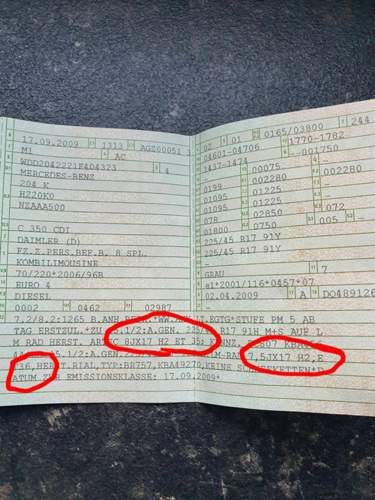 17.09.2009 1313 AGZ00051
M1 AC
WDD2042221F404323 4
MERCEDES-BENZ
204 K
H220K0
NZAAA500
C 350 CDI
DAIMLER (D)
FZ.Z.PERS.BEF.B. 8 SPL.
KOMBILIMOUSINE
70/220*2006/96B
EURO 4
DIESEL
0002 0462 02987
02 01 0165/03800 244
04601-04706 1770-1782
1437-1474 -001750
00075
0199 002280 002280
01095 01225
01095 01225
078 02850 072
01800 0750 005
225/45 R17 91Y
225/45 R17 91Y
GRAU 7
e1*2001/116*0457*07
02.04.2009 A DO489126
7.2/8.2:1265 B.ANH.BETR. EGTG*STUFE PM 5 AB
TAG ERSTZUL.*ZU 1/2:A.GEN. R17 91H M+S AUF L
M RAD HERST. 8JX17 H2 ET 35;
1/2:A.GEN. 7,5JX17 H2,E
T36,HERST.RIAL,TYP:BR757,KBA49270,KEINE SCHNEEKETTEN*D
ATUM ZUR EMISSIONSKLASSE: 17.09.2009*